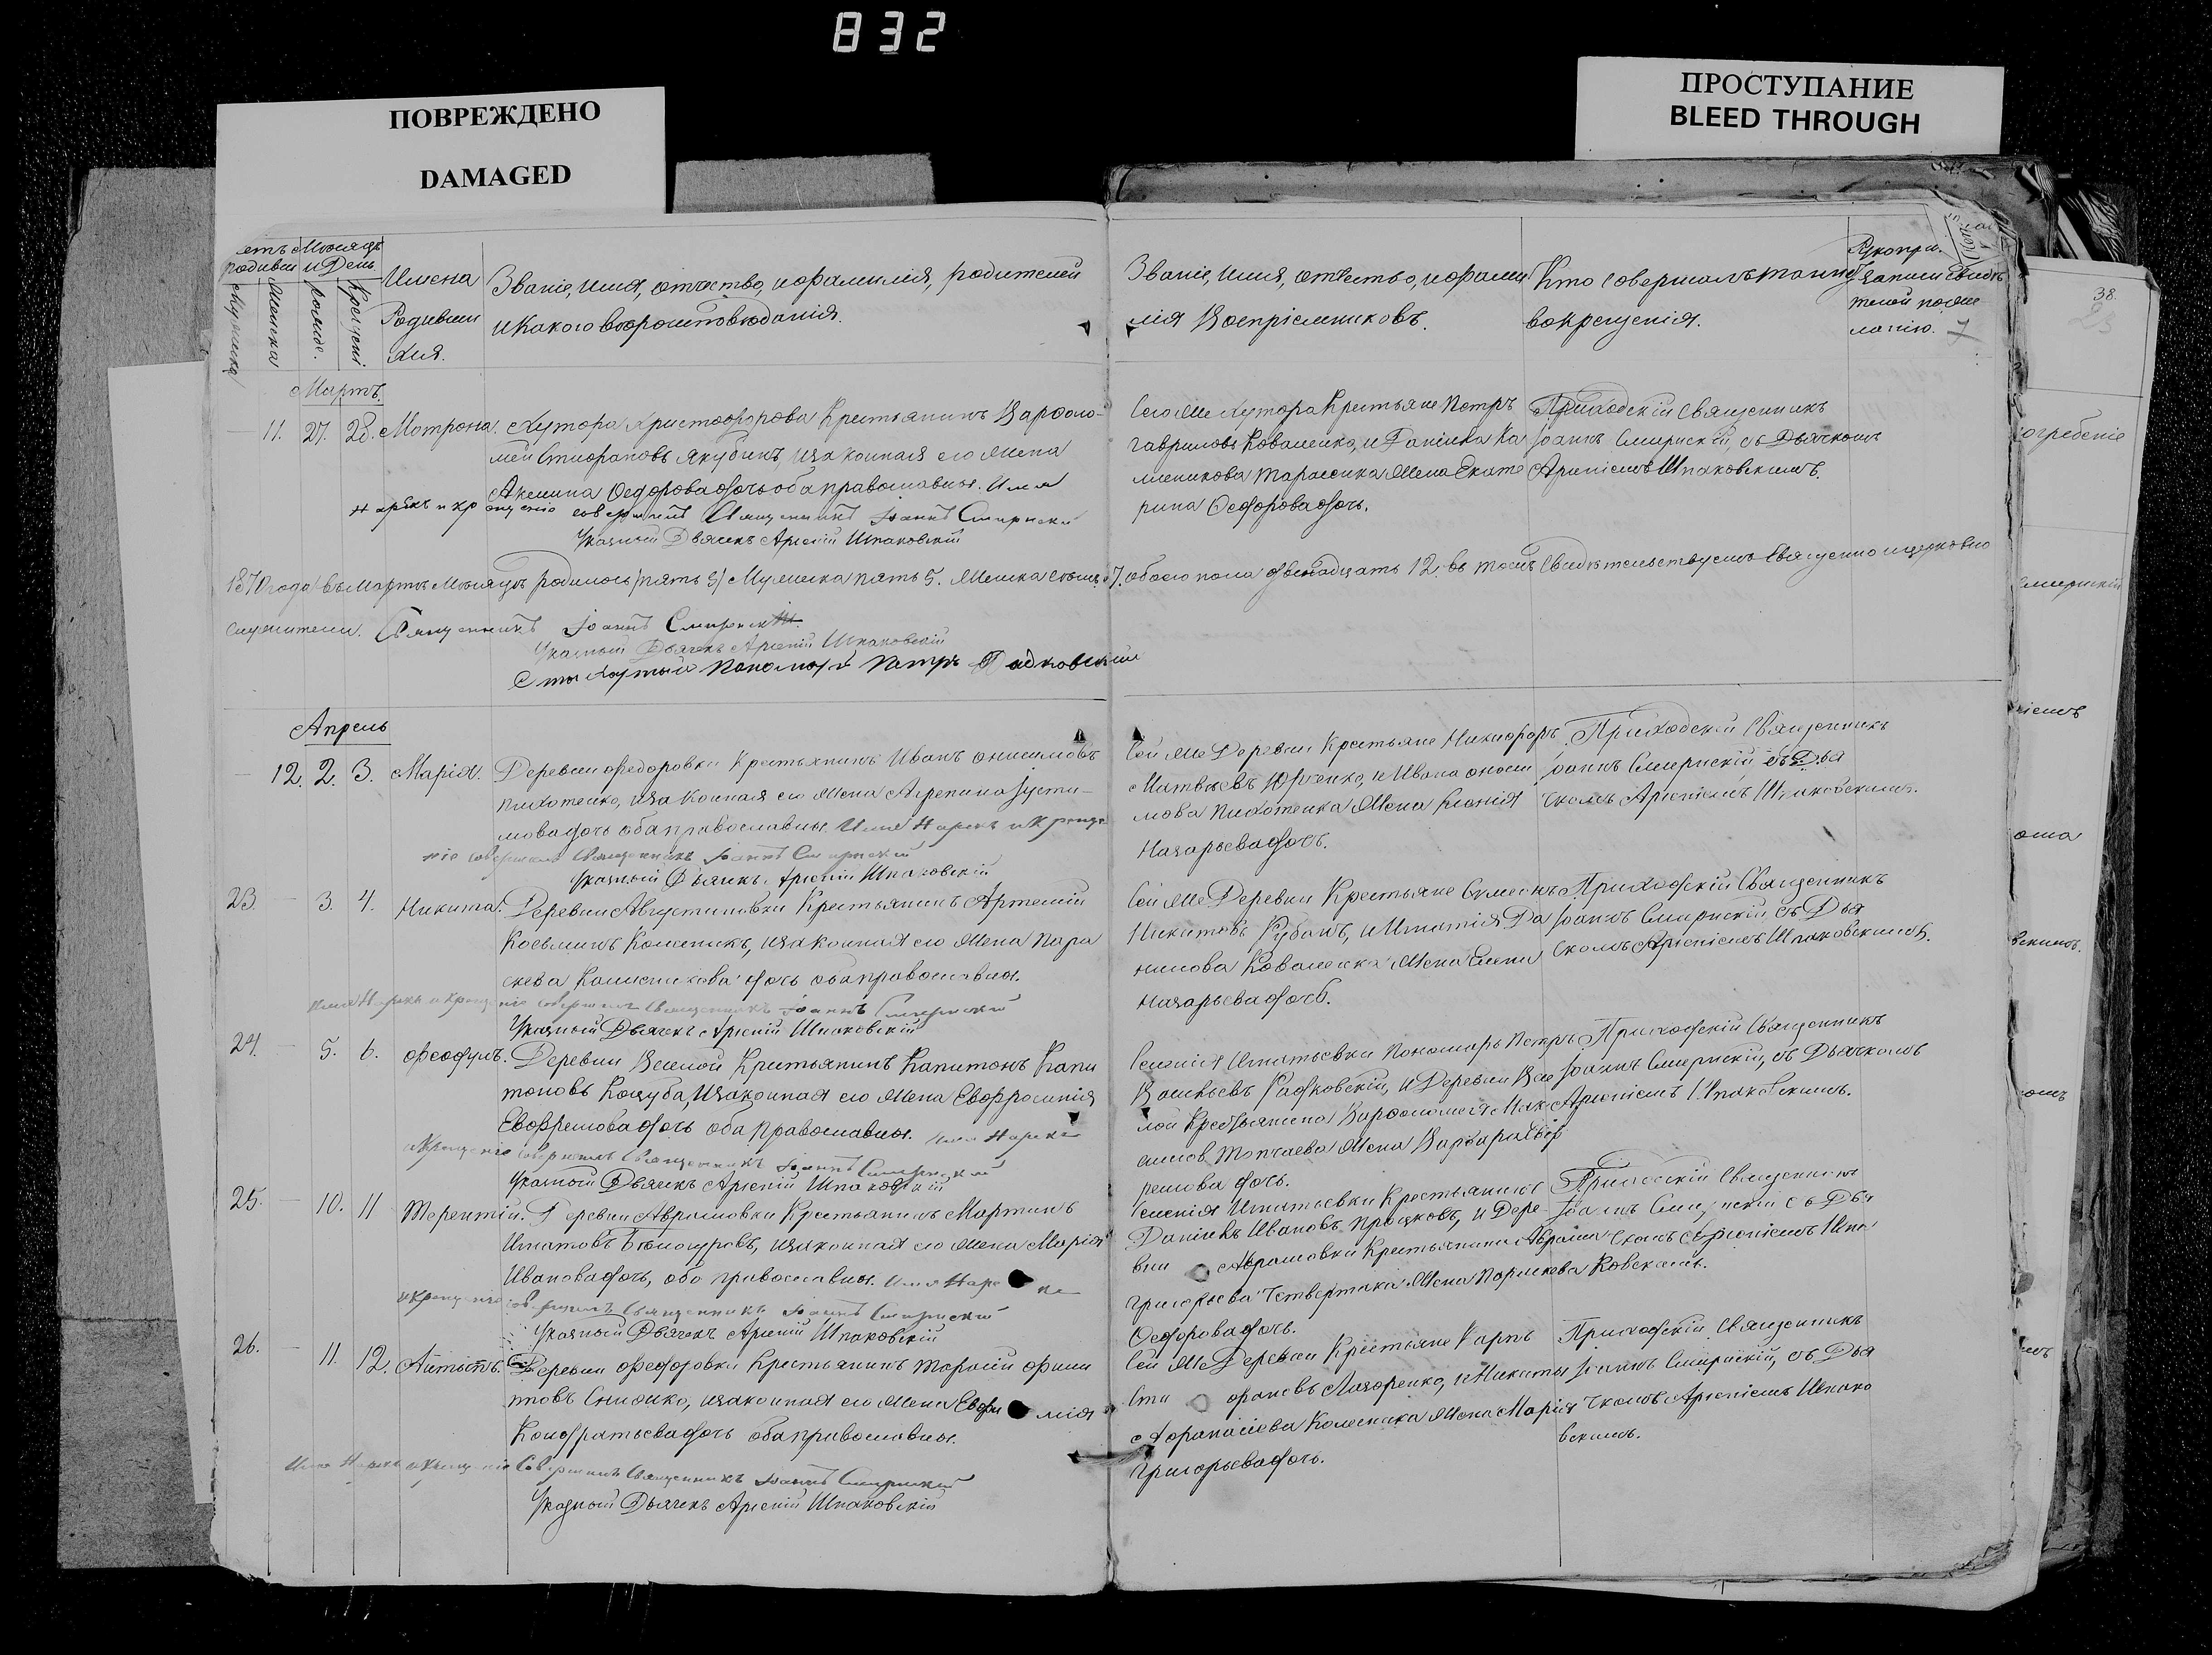 832
ПОВРЕЖДЕНО
DAMAGED
ПРОСТУПАНИЕ
BLEED THROUGH
38.
Имена
Родивши
хся.
Званіе, имя, отчество, и фамилія, родителей
и какого вероисповѣданія.
Званіе, имя, отчество, и фами
лія Воспріемниковъ.
Кто совершалъ таинс
во крещенія.
Мартъ.
11. 27. 28. Матрона. Хутора Христофорова Крестьянинъ Варфоло-
мей Стифановъ Якубинъ, и законная его жена
Акелина Ѳедорова дочь оба православны. Имя
нарѣкъ и крещеніе совершилъ Священникъ Іоаннъ Смирнскій
Указный Дьячекъ Арсеній Шпаковскій
Сего же Хутора Крестьяне Петръ
Гавриловъ Коваленко, и Даніила Ка
линикова Тарасенка жена Екате
рина Ѳедорова дочь.
Приходскій Священникъ
Іоаннъ Смирнскій, съ Дьячкомъ
Арсеніемъ Шпаковскимъ.
1870 года въ Мартѣ Мѣсяцѣ родилось мужеска пять 5. женска семь 7. обоего пола двенадцать 12. въ томъ Свидѣтельствуемъ Священно и церковно
служители. Священникъ Іоаннъ Смирнскій
Указный Дьячекъ Арсеній Шпаковскій
Пономарь Петръ Радковскій
Апрель
12. 2. 3. Марія. Деревни Федоровки Крестьянинъ Иванъ Онисимовъ
Пихотенко, и законная его жена Агрепина Јусти-
мова дочь оба православны. Имя Нарекъ и Креще
ніе совершилъ Священникъ Іоаннъ Смирнскій
Указный Дьячекъ Арсеній Шпаковскій
Сей же Деревни Крестьяне Никифоръ
Матвѣевъ Юрченко, и Ивана Онеси
мова Пихотенка жена Ксенія
Назарьева дочь.
Приходскій Священникъ
Іоаннъ Смирнскій съ Дья
чкомъ Арсеніемъ Шпаковскимъ.
23. 3. 4. Никита. Деревни Августиновки Крестьянинъ Артемій
Косьминъ Колесникъ, и законная его жена Пара
скева Калистикова дочь оба православны.
имя Нарекъ и крещеніе совершилъ Священникъ Іоаннъ Смирнскій
Указный Дьячекъ Арсеній Шпаковскій
Сей же Деревни Крестьяне Симеонъ
Никитовъ Кубанъ, и Игнатія Да
нилова Коваленка жена Елена
Назарьева дочь.
Приходскій Священникъ
Іоаннъ Смирнскій, съ Дья
чкомъ Арсеніемъ Шпаковскимъ.
24. 5. 6. Феофулъ. Деревни Веселой Крестьянинъ Капитонъ Капи
тоновъ Коцуба, и законная его жена Евфросинія
Евфремова дочь оба православны. Имя Нарекъ
и крещеніе совершилъ Священникъ Іоаннъ Смирнскій
Указный Дьячекъ Арсеній Шпаковскій
Селенія Игнатьевки Пономарь Петръ
Васильевъ Радковскій, и Деревни Весе
лой Крестьянина Варфоломея Мак
симов Топчаева жена Варвара Ев
ремова дочь.
Приходскій Священникъ
Іоаннъ Смирнскій, съ Дьячкомъ
Арсеніемъ Шпаковскимъ.
25. 10. 11 Терентій. Деревни Аврамовки Крестьянинъ Мартинъ
Игнатовъ Бѣлогуровъ, и законная его жена Марія
Иванова дочь, оба православны. Имя Наре
и крещеніе совершилъ Священникъ Іоаннъ Смирнскій
Указный Дьячекъ Арсеній Шпаковскій
Селенія Игнатьевки Крестьянинъ
Даніилъ Ивановъ Процковъ, и Дере-
вни Аврамовки Крестьянина Аврама
Григорьева Четвертака жена Параскева
Ѳедорова дочь.
Приходскій Священникъ
Іоаннъ Смирнскій съ Дья
чкомъ Арсеніемъ Шпа
ковскимъ.
26. 11. 12. Антипъ. Деревни Федоровки Крестьянинъ Тарасій Фили
повъ Снижко, и законная его жена Евфи мія
Кондратьева дочь оба православны.
Имя Нарекъ и крещеніе Совершилъ Священникъ Іоаннъ Смирнскій
Указный Дьячекъ Арсеній Шпаковскій
Сей же Деревни Крестьяне Карпъ
Сти фановъ Лазоренко, и Никиты
Афанасіева Колесника жена Марія
Григорьева дочь.
Приходскій Священникъ
Іоаннъ Смирнскій, съ Дья
чкомъ Арсеніемъ Шпако
вскимъ.